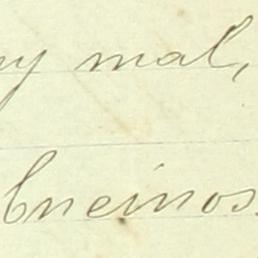 y mal,
Encinos.